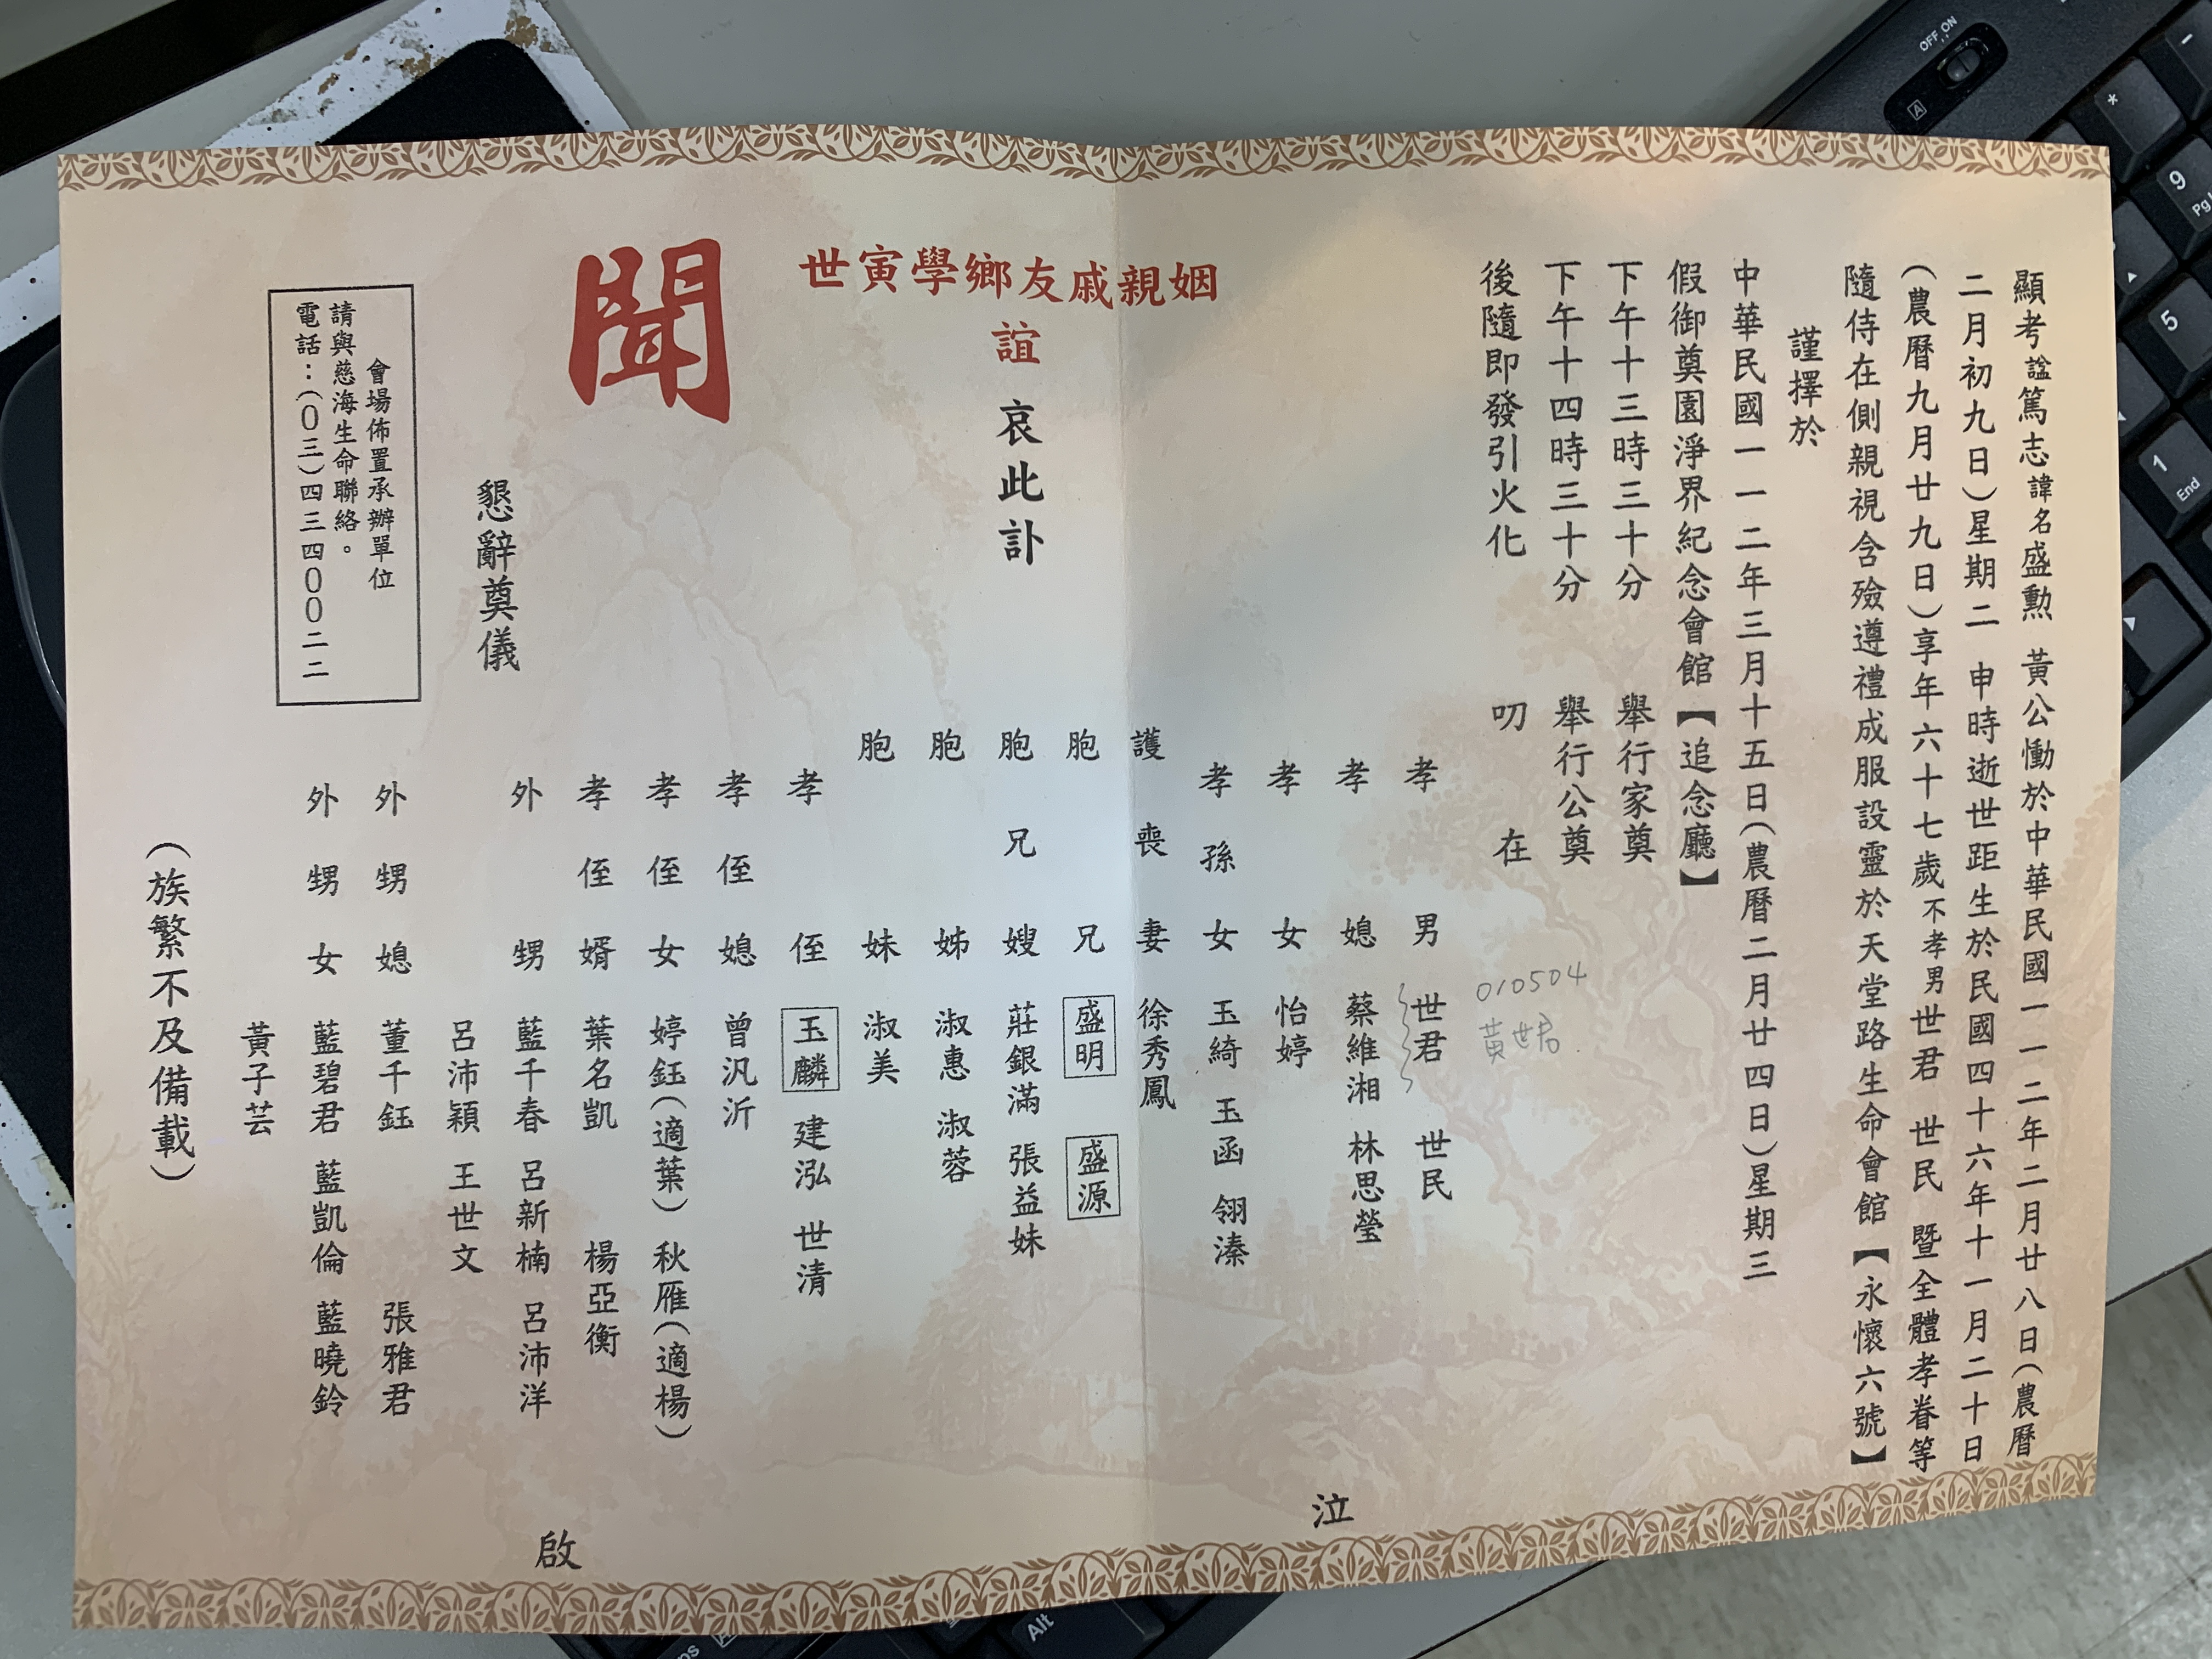 顯考諡篤志諱名盛勲 黃公慟於中華民國一一二年二月廿八日(農曆
二月初九日)星期二 申時逝世距生於民國四十六年十一月二十日
(農曆九月廿九日)享年六十七歲不孝男世君 世民 暨全體孝眷等
隨侍在側親視含殮遵禮成服設靈於天堂路生命會館【永懷六號】
謹擇於
中華民國一一二年三月十五日(農曆二月廿四日)星期三
假御奠園淨界紀念會館【追念廳】
下午十三時三十分 舉行家奠
下午十四時三十分 舉行公奠
後隨即發引火化 叨在
姻親戚友鄉學寅世
誼 哀此訃
聞
懇辭奠儀
孝男 世君 世民
010504
黃世君
孝媳 蔡維湘 林思瑩
孝女 怡婷
孝孫女 玉綺 玉函 翎溱
護喪妻 徐秀鳳
胞兄 盛明 盛源
胞兄嫂 莊銀滿 張益妹
胞姊 淑惠 淑蓉
胞妹 淑美
孝侄 玉麟 建泓 世清
孝侄媳 曾汎沂
孝侄女 婷鈺(適葉) 秋雁(適楊)
孝侄婿 葉名凱 楊亞衡
外甥 藍千春 呂新楠 呂沛洋
呂沛穎 王世文
外甥媳 董千鈺 張雅君
外甥女 藍碧君 藍凱倫 藍曉鈴
黃子芸
(族繁不及備載)
泣
啟
會場佈置承辦單位
請與慈海生命聯絡。
電話:(0三)四三四00二二
OFF ON
A
*
-
9
Pg
5
1
End
Alt